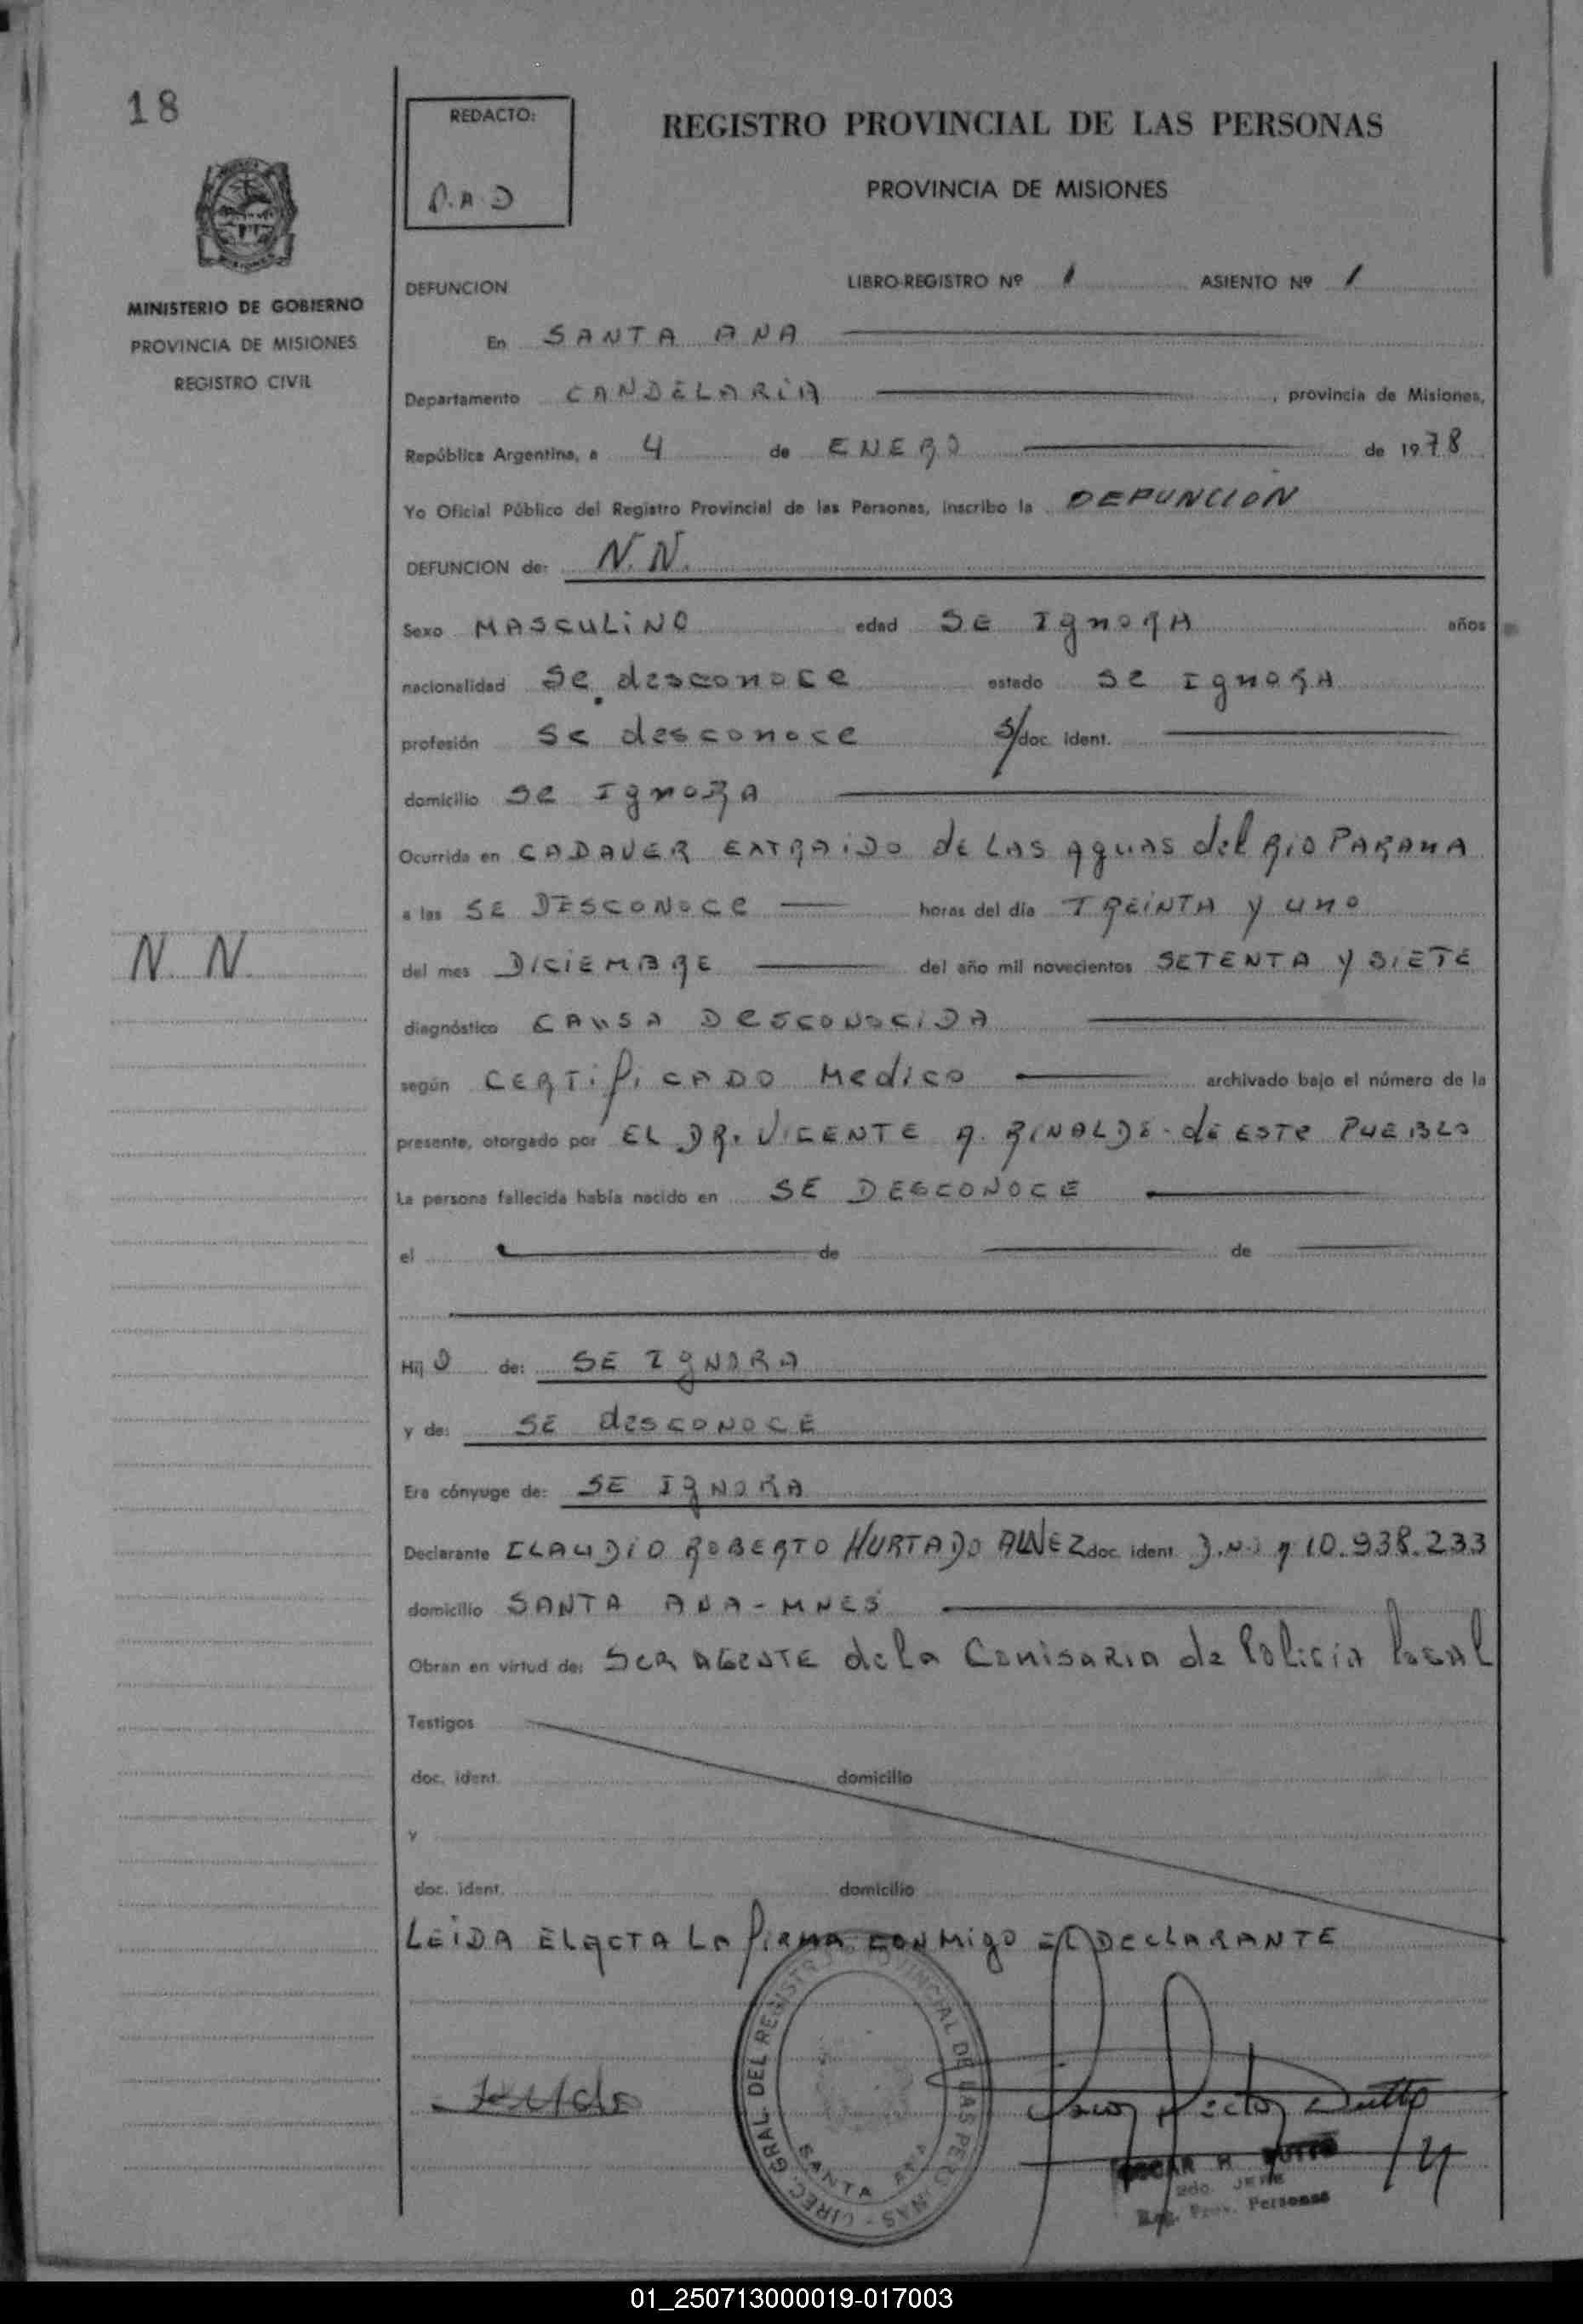 18
REDACTO:
REGISTRO PROVINCIAL DE LAS PERSONAS
PROVINCIA DE MISIONES
MINISTERIO DE GOBIERNO
PROVINCIA DE MISIONES
REGISTRO CIVIL
DEFUNCION LIBRO-REGISTRO Nº 1 ASIENTO Nº 1
En SANTA ANA
Departamento CANDELARIA , provincia de Misiones,
República Argentina, a 4 de ENERO de 1978
Yo Oficial Público del Registro Provincial de las Personas, inscribo la DEFUNCION
DEFUNCION de: N. N.
Sexo MASCULINO edad SE IgnoRA años
nacionalidad Se desconoce estado se IgnoRA
profesión Se desconoce S/doc. ident.
domicilio se IgnoRA
Ocurrida en CADAVER EXTRAiDO de LAS AguAS del RiO PARANA
a las SE DESCONOCe horas del día TREiNTA y uno
N. N. del mes DICIEMBRE del año mil novecientos SETENTA y SIETE
diagnóstico CAUSA DESCONOCiDA
según CERTificADO Medico archivado bajo el número de la
presente, otorgado por EL DR. VICENTE A. RINALDI - de ESTe PUEBLO
La persona fallecida había nacido en SE DESCONOCE
el de de
Hijo de: SE IgNORA
y de: SE desCONOCE
Era cónyuge de: SE IgNORA
Declarante CLAUDiO ROBERTO HURTADO doc. ident. 10.938.233
domicilio SANTA ANA - MNES
Obran en virtud de: SER AGENTE de la Comisaria de Policia locAL
Testigos
doc. ident. domicilio
y
doc. ident. domicilio
LEIDA EL ACTA LA FiRMA CONMigo EL DECLARANTE
DIREC. GRAL. DEL REGISTRO PROVINCIAL DE LAS PERSONAS -
SANTA ANA
OSCAR H. DUTTO
2do. JEFE
Reg. Prov. Personas
01_250713000019-017003